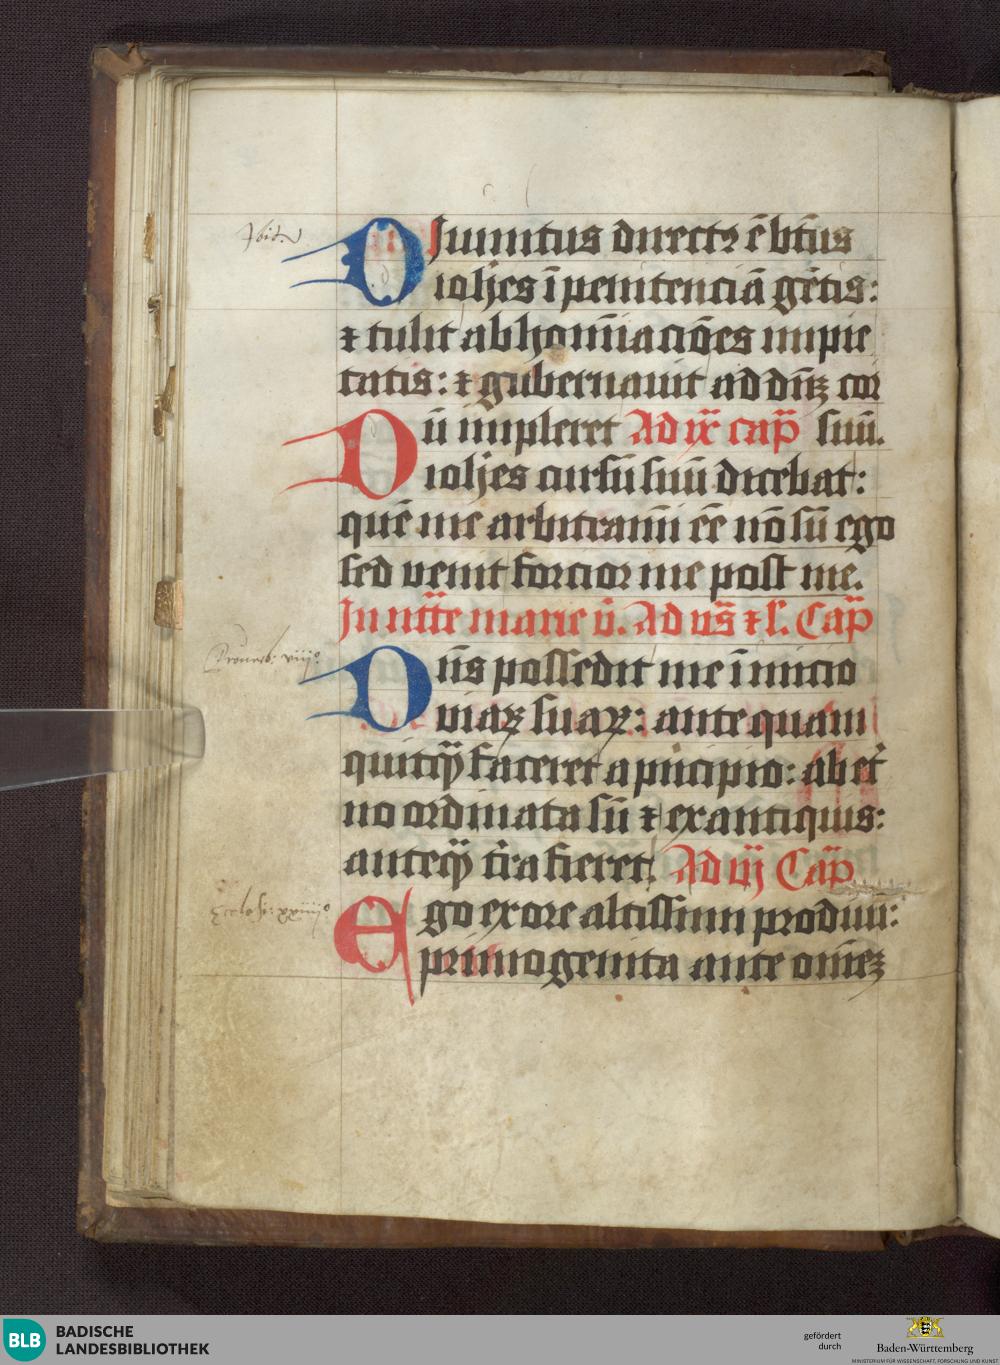 Ibid.
DJuinitus directꝫ ē btūs
iohēs ī penitenciā gētis:
⁊ tulit abhomīaciōes impie
tatis: ⁊ gubernauit ad dn̄ꝫ cor
Dū impleret Ad ix cap̄ suū.
iohēs cursū suū dicebat:
quē me arbitramī eē nō sū ego
sed venit forcior me post me.
In nt̄te marie v̄. Ad vs̄ ⁊ l'. Cap̄
Prouerb: viij°
Dn̄s possedit me ī inicio
viaꝝ suaꝝ: ante quam
quitq̄ faceret a pͥncipio: ab et͛
no ordinata sū ⁊ ex antiquis:
anteq̄ t͛ra fieret. Ad iij Cap̄
Ecclesi: xxiiij°
Ego ex ore altissimi prodiui:
primogenita ante om̄eꝫ
BLB BADISCHE
LANDESBIBLIOTHEK
gefördert
durch
Baden-Württemberg
MINISTERIUM FÜR WISSENSCHAFT, FORSCHUNG UND KUNST